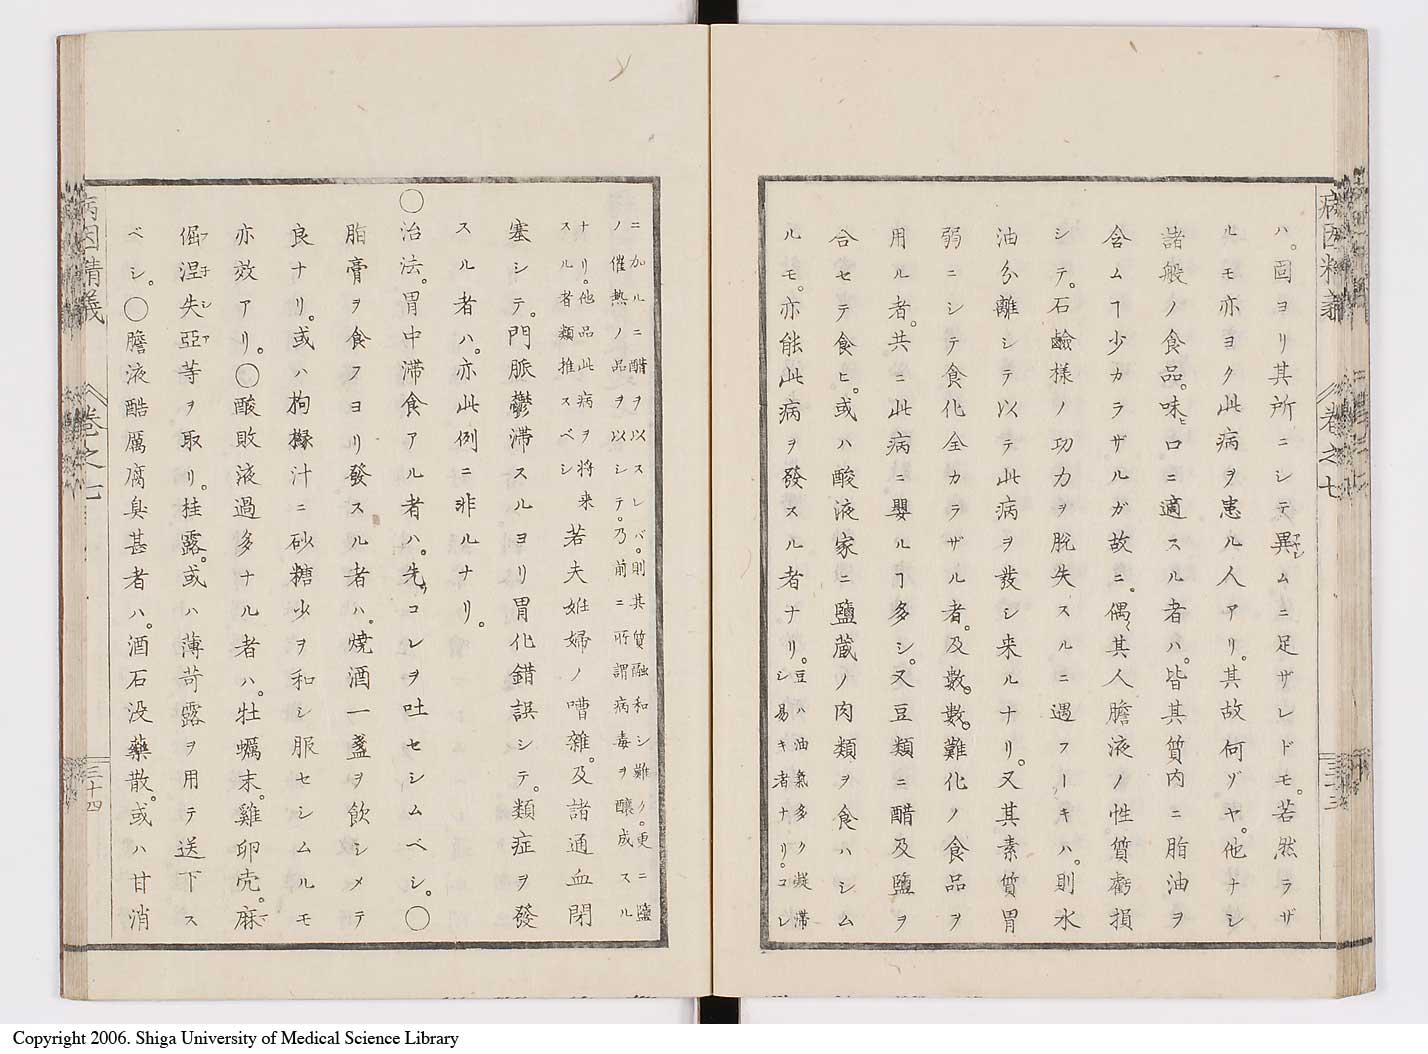 ハ。固ヨリ其所ニシテ異ムニ足ザレドモ。若然ラザ
ルモ亦ヨク此病ヲ患ル人アリ。其故何ゾヤ。他ナシ
諸般ノ食品。味ヒ口ニ適スル者ハ。皆其質内ニ脂油ヲ
含ムヿ少カラザルガ故ニ。偶其人膽液ノ性質虧損
シテ。石鹼様ノ功力ヲ脱失スルニ遇フーキハ。則水
油分離シテ以テ此病ヲ發シ来ルナリ。又其素質胃
弱ニシテ食化全カラザル者。及數數。難化ノ食品ヲ
用ル者。共ニ此病ニ嬰ルヿ多シ。又豆類ニ醋及鹽ヲ
合セテ食ヒ。或ハ酸液家ニ鹽蔵ノ肉類ヲ食ハシム
ルモ。亦能此病ヲ發スル者ナリ。豆ハ油氣多ク凝滞
シ易キ者ナリ。コレ
病因精義 巻之七 三十三
ニ加ルニ醋ヲ以スレバ。則其質融和シ難ク。更ニ鹽
ノ催熱ノ品ヲ以シテ。乃前ニ所謂病毒ヲ釀成スル
ナリ。他品此病ヲ将来
スル者類推スベシ
若夫姙婦ノ嘈雜。及諸通血閉
塞シテ。門脈鬱滞スルヨリ胃化錯誤シテ。類症ヲ發
スル者ハ。亦此例ニ非ルナリ。
〇治法。胃中滞食アル者ハ。先ヅコレヲ吐セシムベシ。〇
脂膏ヲ食フヨリ發スル者ハ。焼酒一盞ヲ飲シメテ
良ナリ。或ハ枸櫞汁ニ砂糖少ヲ和シ服セシムルモ
亦效アリ。〇酸敗液過多ナル者ハ。牡蠣末。雞卵壳。麻
倔涅失亞等ヲ取リ。桂露。或ハ薄苛露ヲ用テ送下ス
ベシ。〇膽液酷厲腐臭甚者ハ。酒石没藥散。或ハ甘消
病因精義 巻之七 三十四
Copyright 2006. Shiga University of Medical Science Library